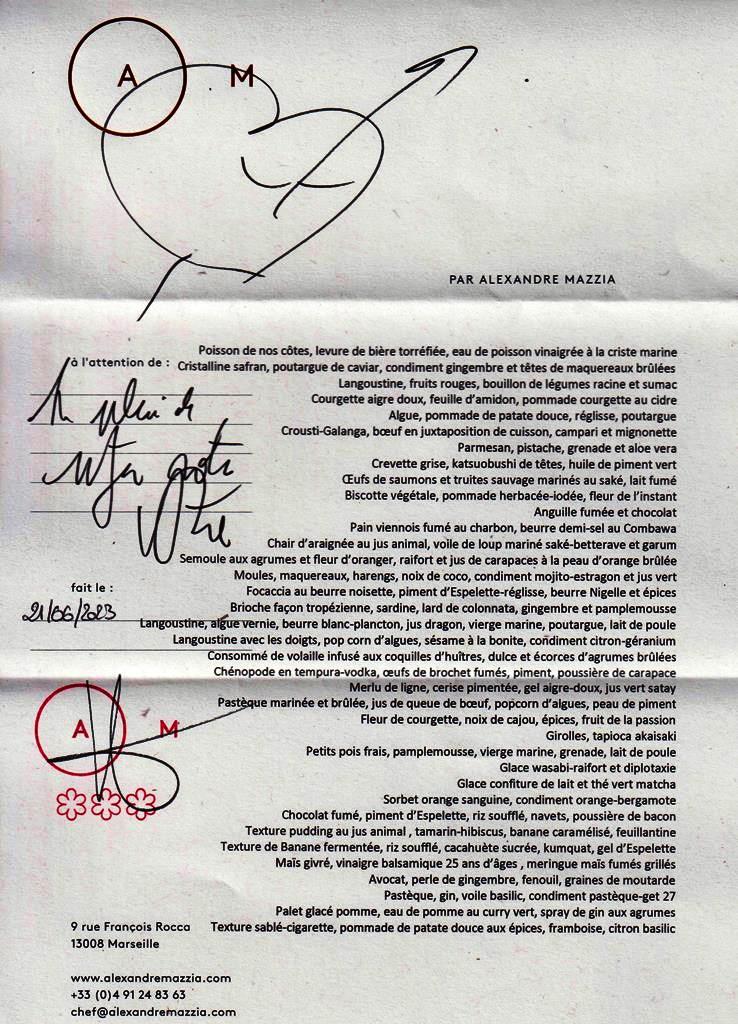 A M
PAR ALEXANDRE MAZZIA
à l'attention de :
fait le :
21/06/2023
Poisson de nos côtes, levure de bière torréfiée, eau de poisson vinaigrée à la criste marine
Cristalline safran, poutargue de caviar, condiment gingembre et têtes de maquereaux brûlées
Langoustine, fruits rouges, bouillon de légumes racine et sumac
Courgette aigre doux, feuille d'amidon, pommade courgette au cidre
Algue, pommade de patate douce, réglisse, poutargue
Crousti-Galanga, bœuf en juxtaposition de cuisson, campari et mignonette
Parmesan, pistache, grenade et aloe vera
Crevette grise, katsuobushi de têtes, huile de piment vert
Œufs de saumons et truites sauvage marinés au saké, lait fumé
Biscotte végétale, pommade herbacée-iodée, fleur de l'instant
Anguille fumée et chocolat
Pain viennois fumé au charbon, beurre demi-sel au Combawa
Chair d'araignée au jus animal, voile de loup mariné saké-betterave et garum
Semoule aux agrumes et fleur d'oranger, raifort et jus de carapaces à la peau d'orange brûlée
Moules, maquereaux, harengs, noix de coco, condiment mojito-estragon et jus vert
Focaccia au beurre noisette, piment d'Espelette-réglisse, beurre Nigelle et épices
Brioche façon tropézienne, sardine, lard de colonnata, gingembre et pamplemousse
Langoustine, algue vernie, beurre blanc-plancton, jus dragon, vierge marine, poutargue, lait de poule
Langoustine avec les doigts, pop corn d'algues, sésame à la bonite, condiment citron-géranium
Consommé de volaille infusé aux coquilles d'huîtres, dulce et écorces d'agrumes brûlées
Chénopode en tempura-vodka, œufs de brochet fumés, piment, poussière de carapace
Merlu de ligne, cerise pimentée, gel aigre-doux, jus vert satay
Pastèque marinée et brûlée, jus de queue de bœuf, popcorn d'algues, peau de piment
Fleur de courgette, noix de cajou, épices, fruit de la passion
Girolles, tapioca akaisaki
Petits pois frais, pamplemousse, vierge marine, grenade, lait de poule
Glace wasabi-raifort et diplotaxie
Glace confiture de lait et thé vert matcha
Sorbet orange sanguine, condiment orange-bergamote
Chocolat fumé, piment d'Espelette, riz soufflé, navets, poussière de bacon
Texture pudding au jus animal , tamarin-hibiscus, banane caramélisé, feuillantine
Texture de Banane fermentée, riz soufflé, cacahuète sucrée, kumquat, gel d'Espelette
Maïs givré, vinaigre balsamique 25 ans d'âges , meringue maïs fumés grillés
Avocat, perle de gingembre, fenouil, graines de moutarde
Pastèque, gin, voile basilic, condiment pastèque-get 27
Palet glacé pomme, eau de pomme au curry vert, spray de gin aux agrumes
Texture sablé-cigarette, pommade de patate douce aux épices, framboise, citron basilic
A M
9 rue François Rocca
13008 Marseille
www.alexandremazzia.com
+33 (0)4 91 24 83 63
chef@alexandremazzia.com